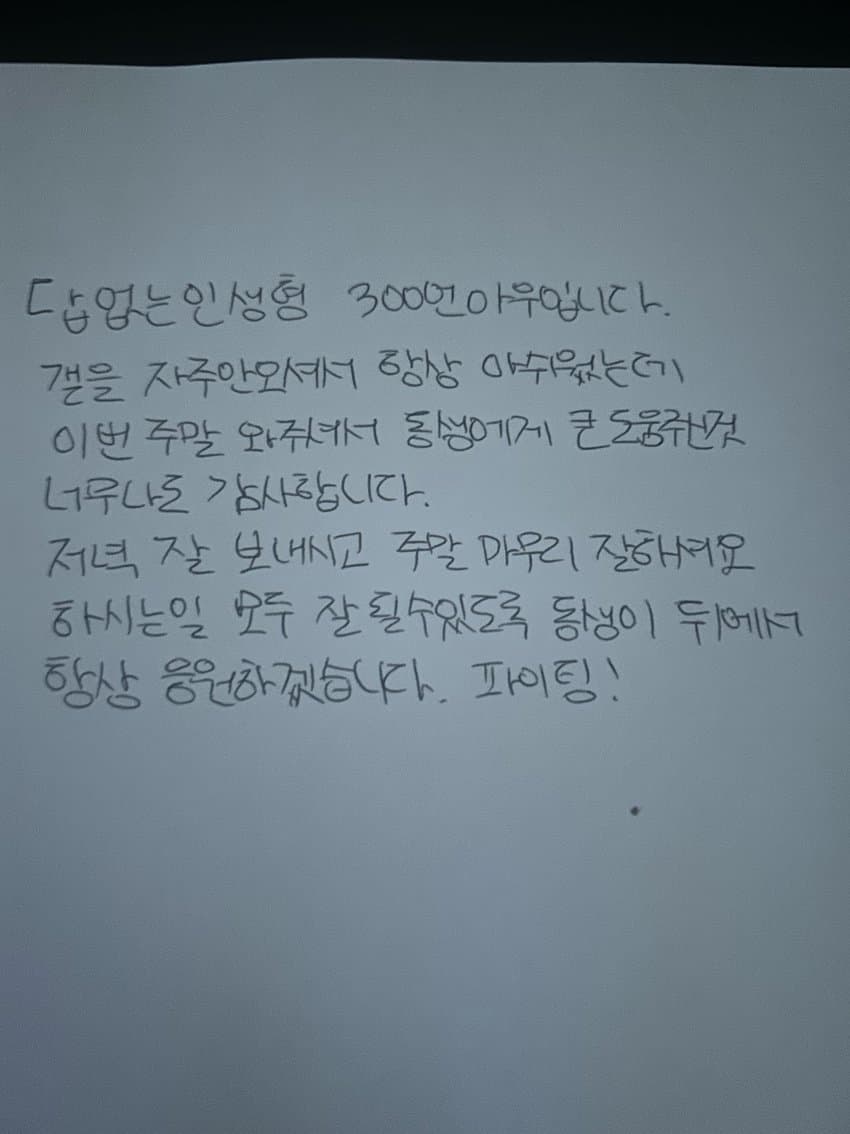 답없는인생형 300언아우입니다.
갤을 자주안오셔서 항상 아쉬웠는데
이번 주말 와주셔서 동생에게 큰도움주신것
너무나도 감사합니다.
저녁 잘 보내시고 주말 마무리 잘하셔요
하시는일 모두 잘 될수있도록 동생이 뒤에서
항상 응원하겠습니다. 파이팅!